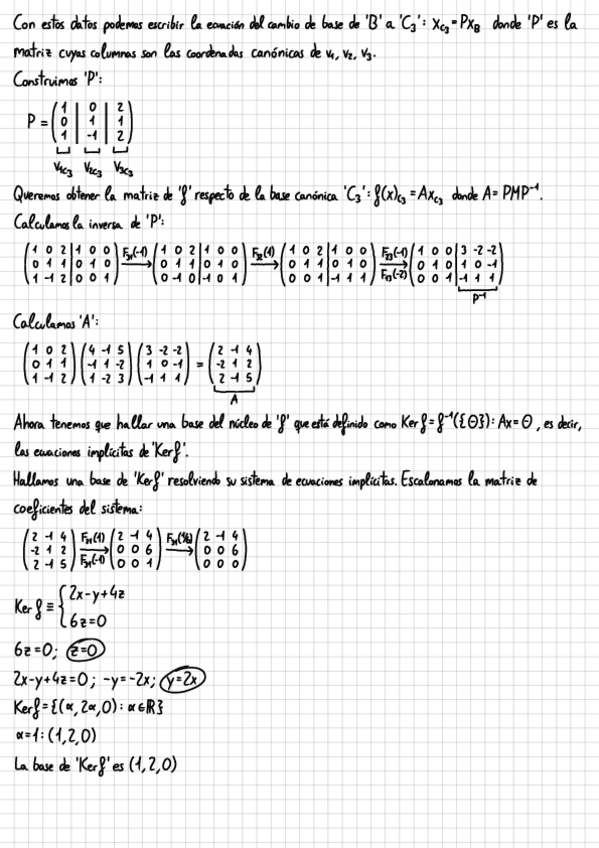 Con estos datos podemos escribir la ecuación del cambio de base de 'B' a 'C₃': X_C₃ = PX_B donde 'P' es la
matriz cuyas columnas son las coordenadas canónicas de v₁, v₂, v₃.
Construimos 'P':
P = (1 | 0 | 2
0 | 1 | 1
1 | -1 | 2)
V₁C₃ V₂C₃ V₃C₃
Queremos obtener la matriz de 'f' respecto de la base canónica 'C₃': f(x)_C₃ = Ax_C₃ donde A = PMP⁻¹.
Calculamos la inversa de 'P':
(1 0 2 | 1 0 0) F₃₁(-1) (1 0 2 | 1 0 0) F₃₂(1) (1 0 2 | 1 0 0) F₂₃(-1) (1 0 0 | 3 -2 -2)
(0 1 1 | 0 1 0) → (0 1 1 | 0 1 0) → (0 1 1 | 0 1 0) → (0 1 0 | 1 0 -1)
(1 -1 2 | 0 0 1) (0 -1 0 | -1 0 1) (0 0 1 | -1 1 1) F₁₃(-2) (0 0 1 | -1 1 1)
P⁻¹
Calculamos 'A':
(1 0 2) (4 -1 5) (3 -2 -2) (2 -1 4)
(0 1 1) (-1 1 -2) (1 0 -1) = (-2 1 2)
(1 -1 2) (1 -2 3) (-1 1 1) (2 -1 5)
A
Ahora tenemos que hallar una base del núcleo de 'f' que está definido como Ker f = f⁻¹({Θ}): Ax = Θ, es decir,
las ecuaciones implícitas de 'Ker f'.
Hallamos una base de 'Ker f' resolviendo su sistema de ecuaciones implícitas. Escalonamos la matriz de
coeficientes del sistema:
(2 -1 4) F₂₁(1) (2 -1 4) F₃₂(-1/6) (2 -1 4)
(-2 1 2) → (0 0 6) → (0 0 6)
(2 -1 5) F₃₁(-1) (0 0 1) (0 0 0)
Ker f ≡ {2x-y+4z
6z=0
6z=0; z=0
2x-y+4z=0; -y=-2x; y=2x
Ker f = {(α, 2α, 0): α∈ℝ}
α=1: (1,2,0)
La base de 'Ker f' es (1,2,0)